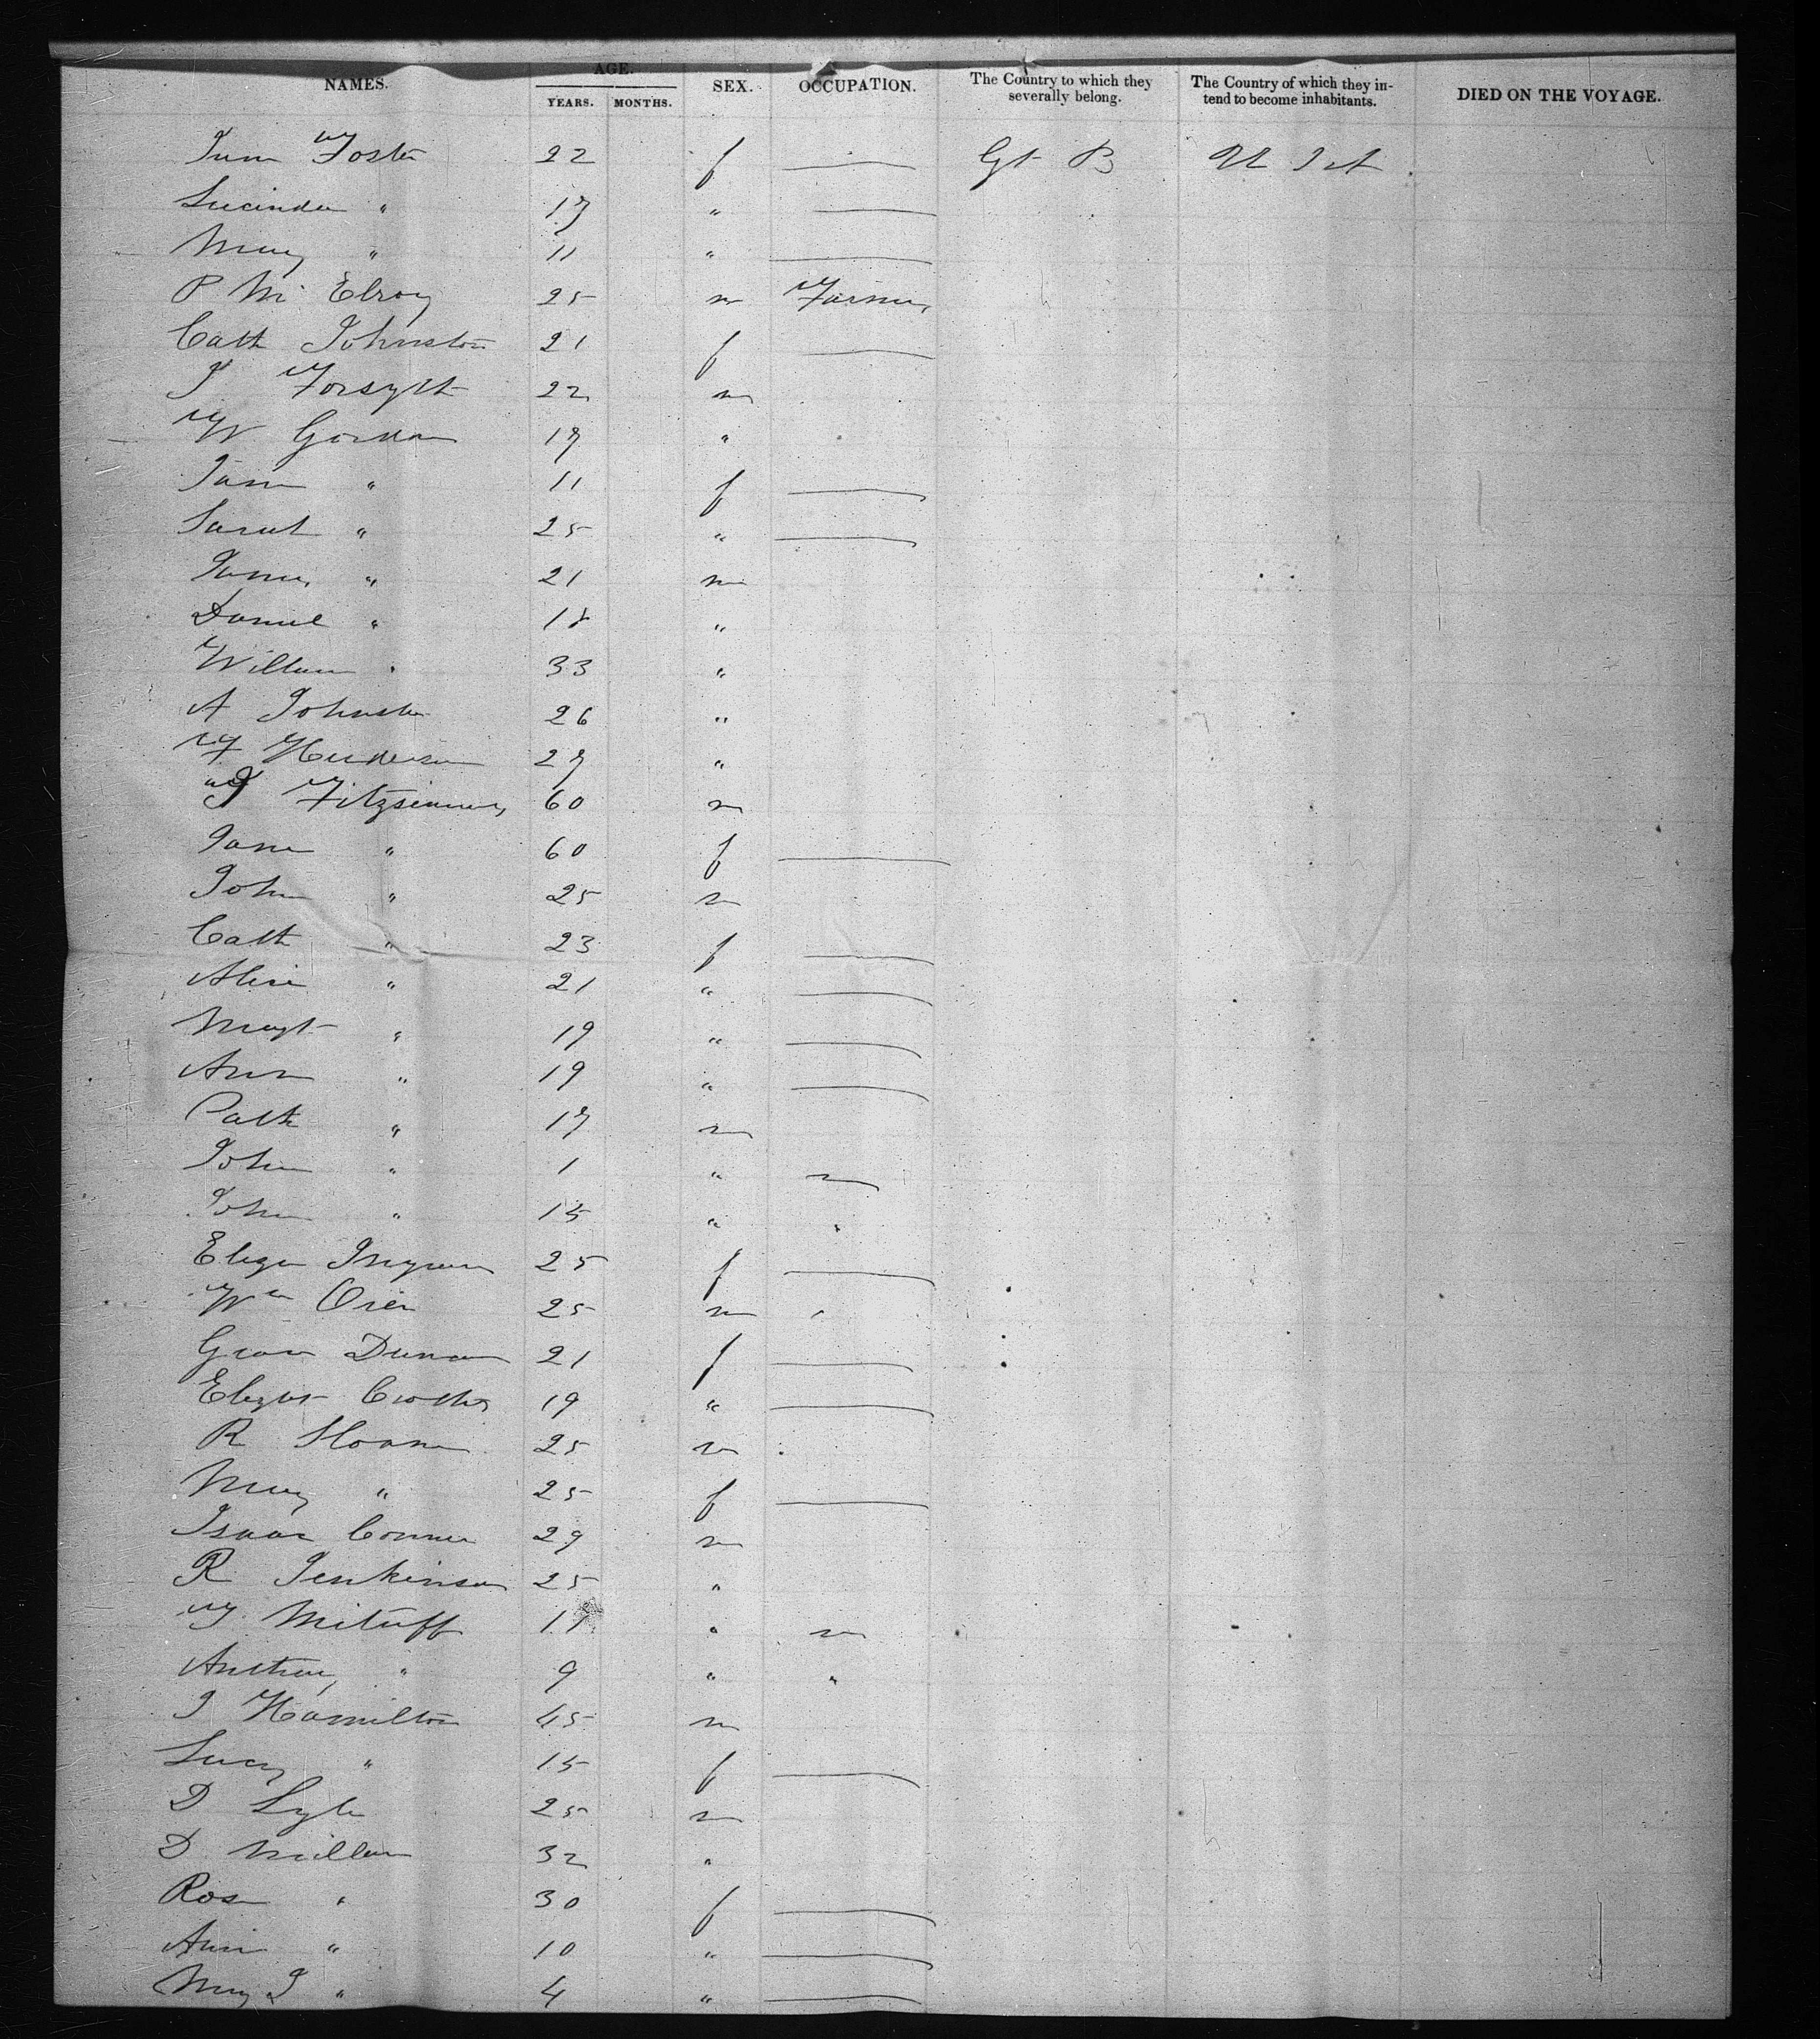 NAMES. AGE. YEARS. MONTHS. SEX. OCCUPATION. The Country to which they severally belong. The Country of which they intend to become inhabitants. DIED ON THE VOYAGE.
Foster 22 f — Gt B U St
Lucinda " 17 " —
Mary " 11 " —
P Mc Elroy 25 m Farmer
Cath Johnston 21 f —
J Forsyth 22 m
W Gordon 17 "
Jane " 11 f —
Sarah " 25 " —
James " 21 m
Daniel " 18 "
William " 33 "
A Johnston 26 "
F Henderson 27 "
Fitzsimmons 60 m
Jane " 60 f —
John " 25 m
Cath " 23 f —
Alice " 21 " —
Margt " 19 " —
Ann " 19 " —
Patk " 17 m
John " 1 "
John " 15 " "
Eliza Ingram 25 f —
Wm 25 m
Grace Duncan 21 f —
Elizbt Crothers 19 " —
R Sloane 25 m
Mary " 25 f —
Isaac Conner 29 m
R Jenkinson 25 "
11 "
" 9 " "
J Hamilton 45 m
Lucy " 15 f —
D Lyle 25 m
D Millan 32 "
Rose " 30 f —
Ann " 10 " —
Mary J " 4 " —